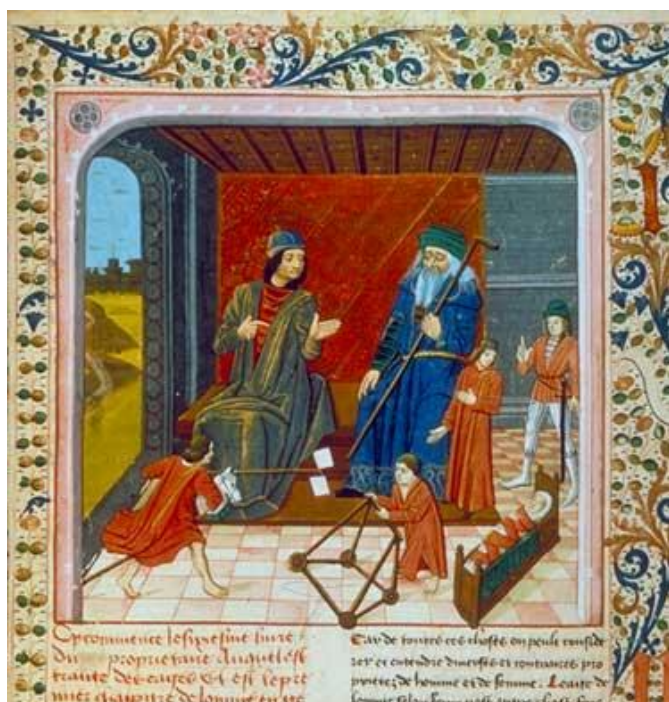 Cy commence le sixiesme liure
du proprietaire Auquel est
traite des eages Et est le pre
mier chapitre de lomme en
Car de toutes ces choses on peult conside
rer et entendre diuerses et contraires pro
prietez de homme et de femme. Leaige de